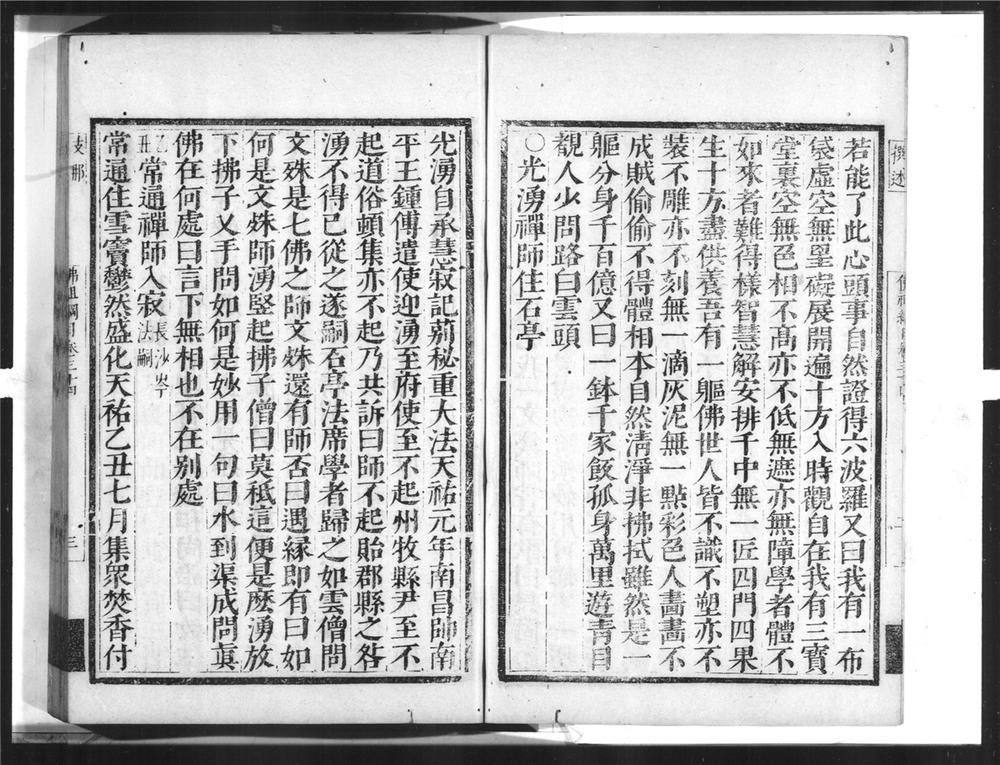 撰述
若能了此心頭事自然證得六波羅又曰我有一布
袋虛空無罣礙展開遍十方入時觀自在我有三寶
堂裏空無色相不高亦不低無遮亦無障學者體不
如來者難得樣智慧解安排千中無一匠四門四果
生十方盡供養吾有一軀佛世人皆不識不塑亦不
裝不雕亦不刻無一滴灰泥無一點彩色人畫畫不
成賊偷偷不得體相本自然清淨非拂拭雖然是一
軀分身千百億又曰一鉢千家飯孤身萬里遊青目
覩人少問路白雲頭
○光湧禪師住石亭
光湧自承慧寂記莂秘重大法天祐元年南昌帥南
平王鍾傅遣使迎湧至府使至不起州牧縣尹至不
起道俗頓集亦不起乃共訴曰師不起貽郡縣之咎
湧不得已從之遂嗣石亭法席學者歸之如雲僧問
文殊是七佛之師文殊還有師否曰遇緣即有曰如
何是文殊師湧竪起拂子僧曰莫秪這便是麽湧放
下拂子叉手問如何是妙用一句曰水到渠成問眞
佛在何處曰言下無相也不在別處
乙丑常通禪師入寂長沙岑法嗣
常通住雪竇鬱然盛化天祐乙丑七月集眾焚香付
支那
佛祖綱目卷三十四
三